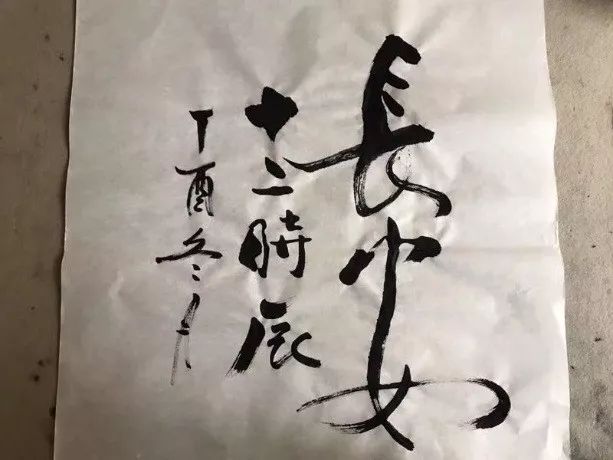 長安
十二時辰
丁酉冬月